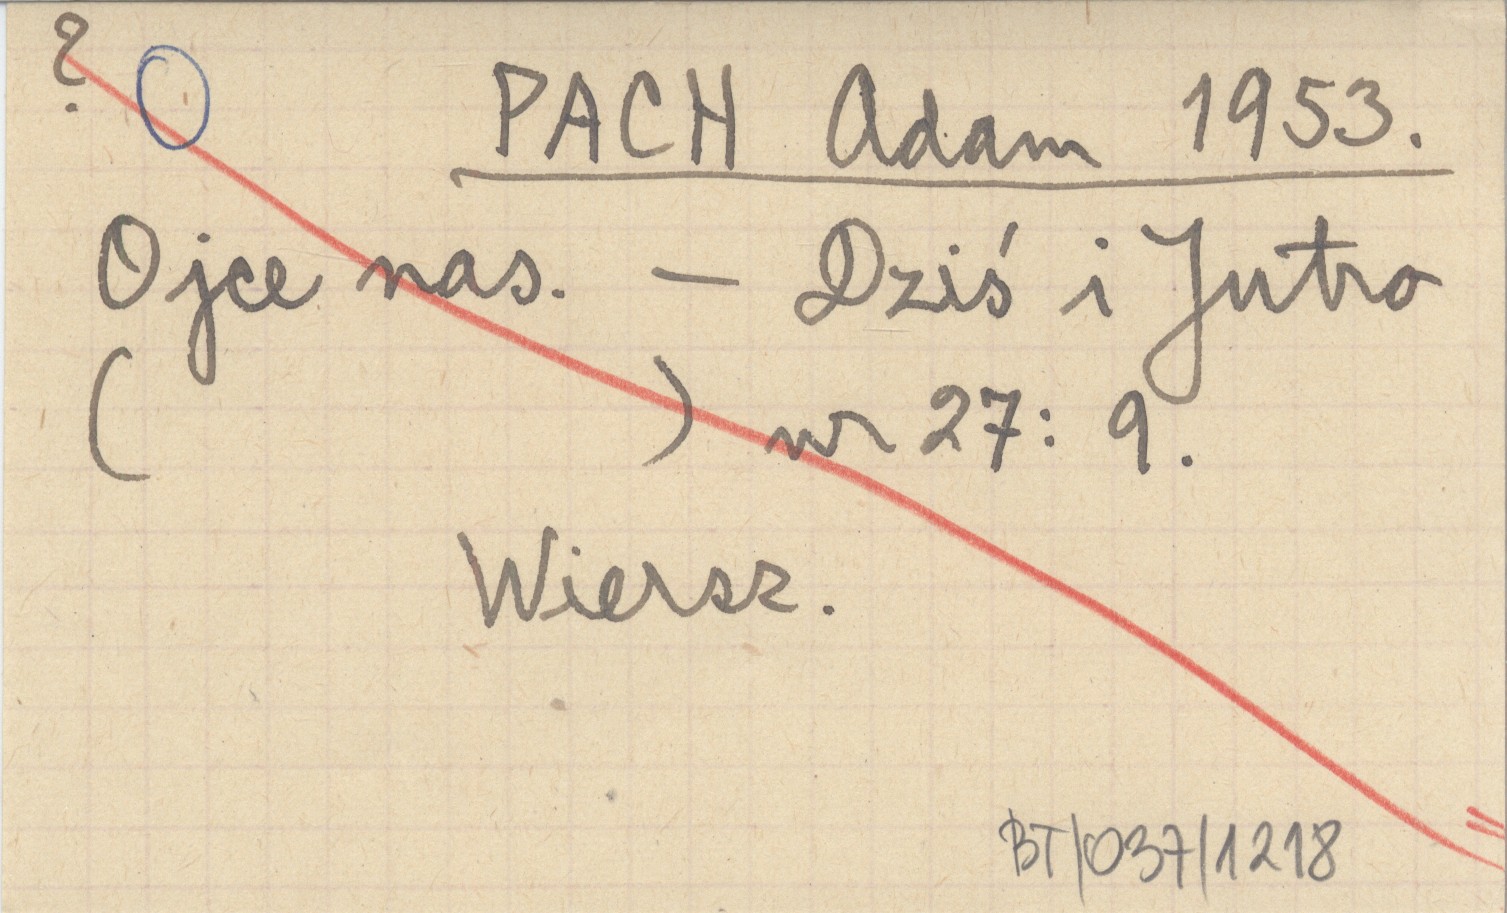 ?
PACH Adam 1953.
Ojce nas. — Dziś i Jutro
( ) nr 27: 9.
Wiersz.
BT/037/1218